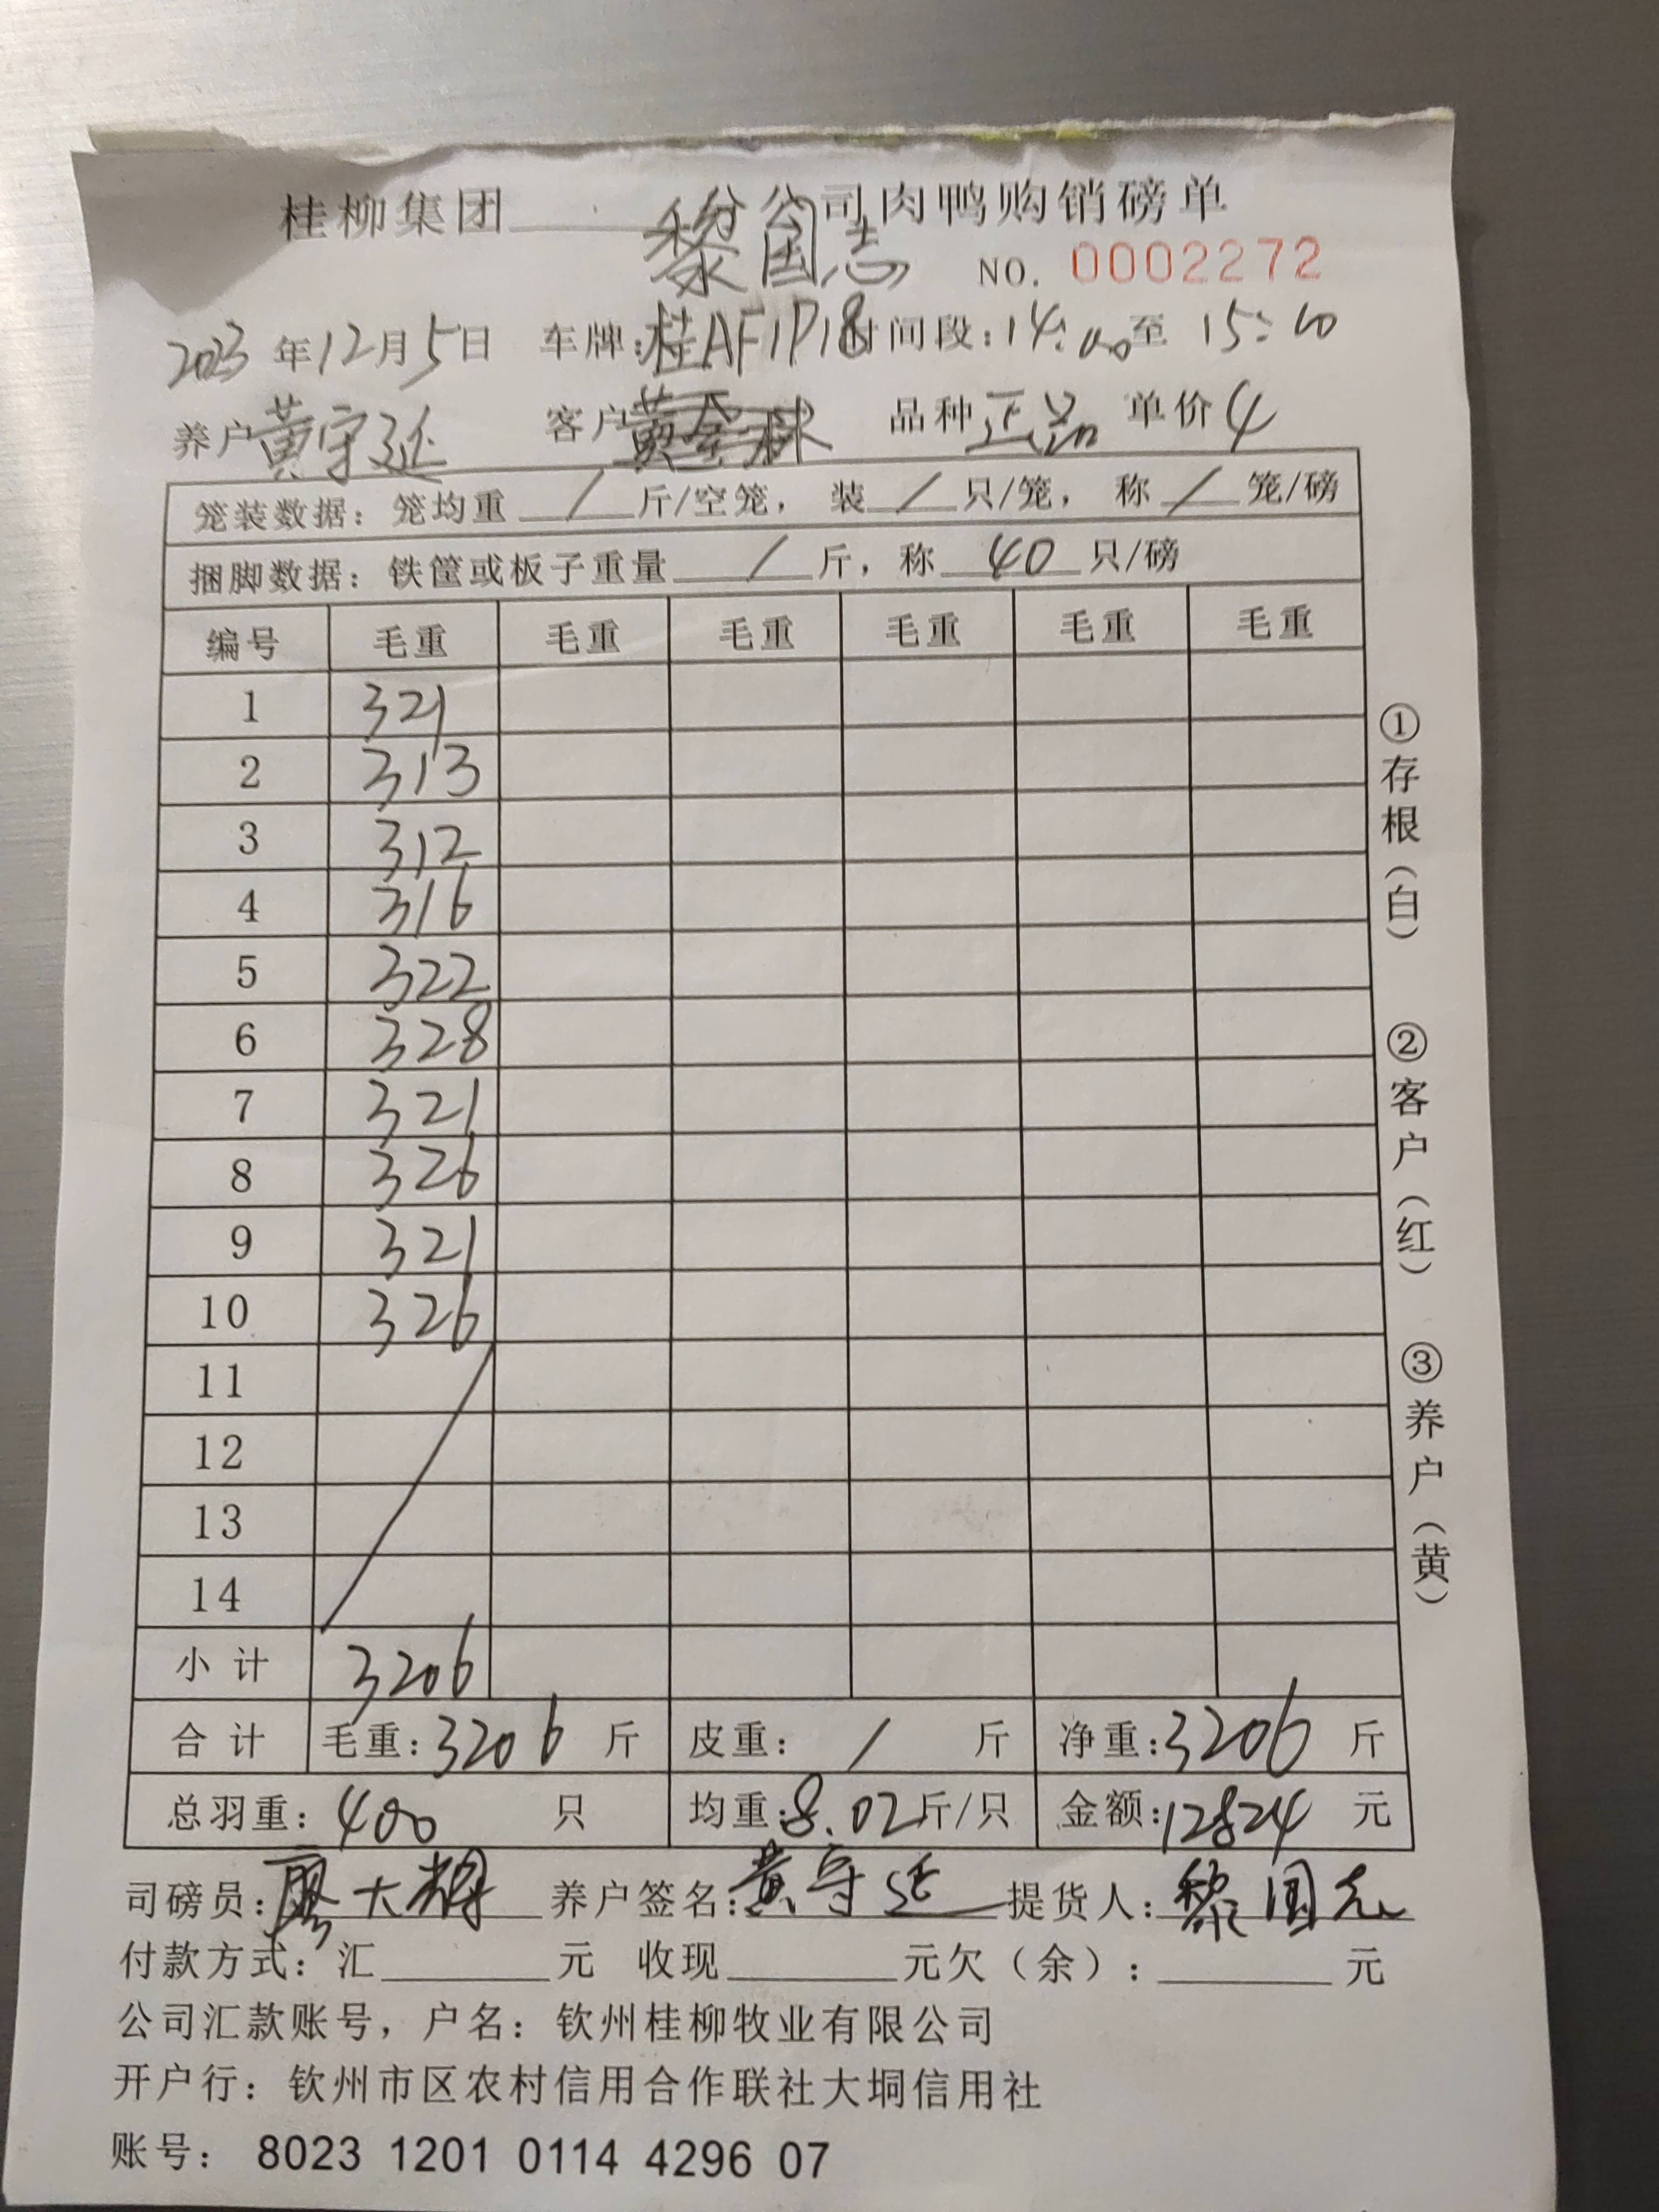 桂柳集团______分公司肉鸭购销磅单
黎国志 NO. 0002272
2023年12月5日 车牌:桂AF1P18 时间段:14:00至15:00
养户黄守延 客户黄金林 品种正品 单价4
笼装数据: 笼均重 / 斤/空笼, 装 / 只/笼, 称 / 笼/磅
捆脚数据: 铁筐或板子重量 / 斤, 称 40 只/磅
编号 毛重 毛重 毛重 毛重 毛重 毛重
1 321
2 313
3 312
4 316
5 322
6 328
7 321
8 326
9 321
10 326
11
12
13
14
小计 3206
合计 毛重:3206 斤 皮重: / 斤 净重:3206 斤
总羽重:400 只 均重:8.02斤/只 金额:12824 元
司磅员:廖大辉 养户签名:黄守延 提货人:黎国志
付款方式: 汇______元 收现______元欠(余):______元
公司汇款账号, 户名: 钦州桂柳牧业有限公司
开户行: 钦州市区农村信用合作联社大垌信用社
账号: 8023 1201 0114 4296 07
①存根(白)
②客户(红)
③养户(黄)